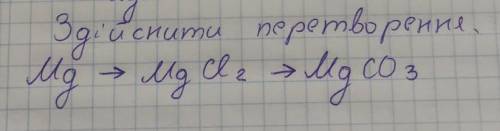 Здійснити перетворення.
Mg → MgCl₂ → MgCO₃